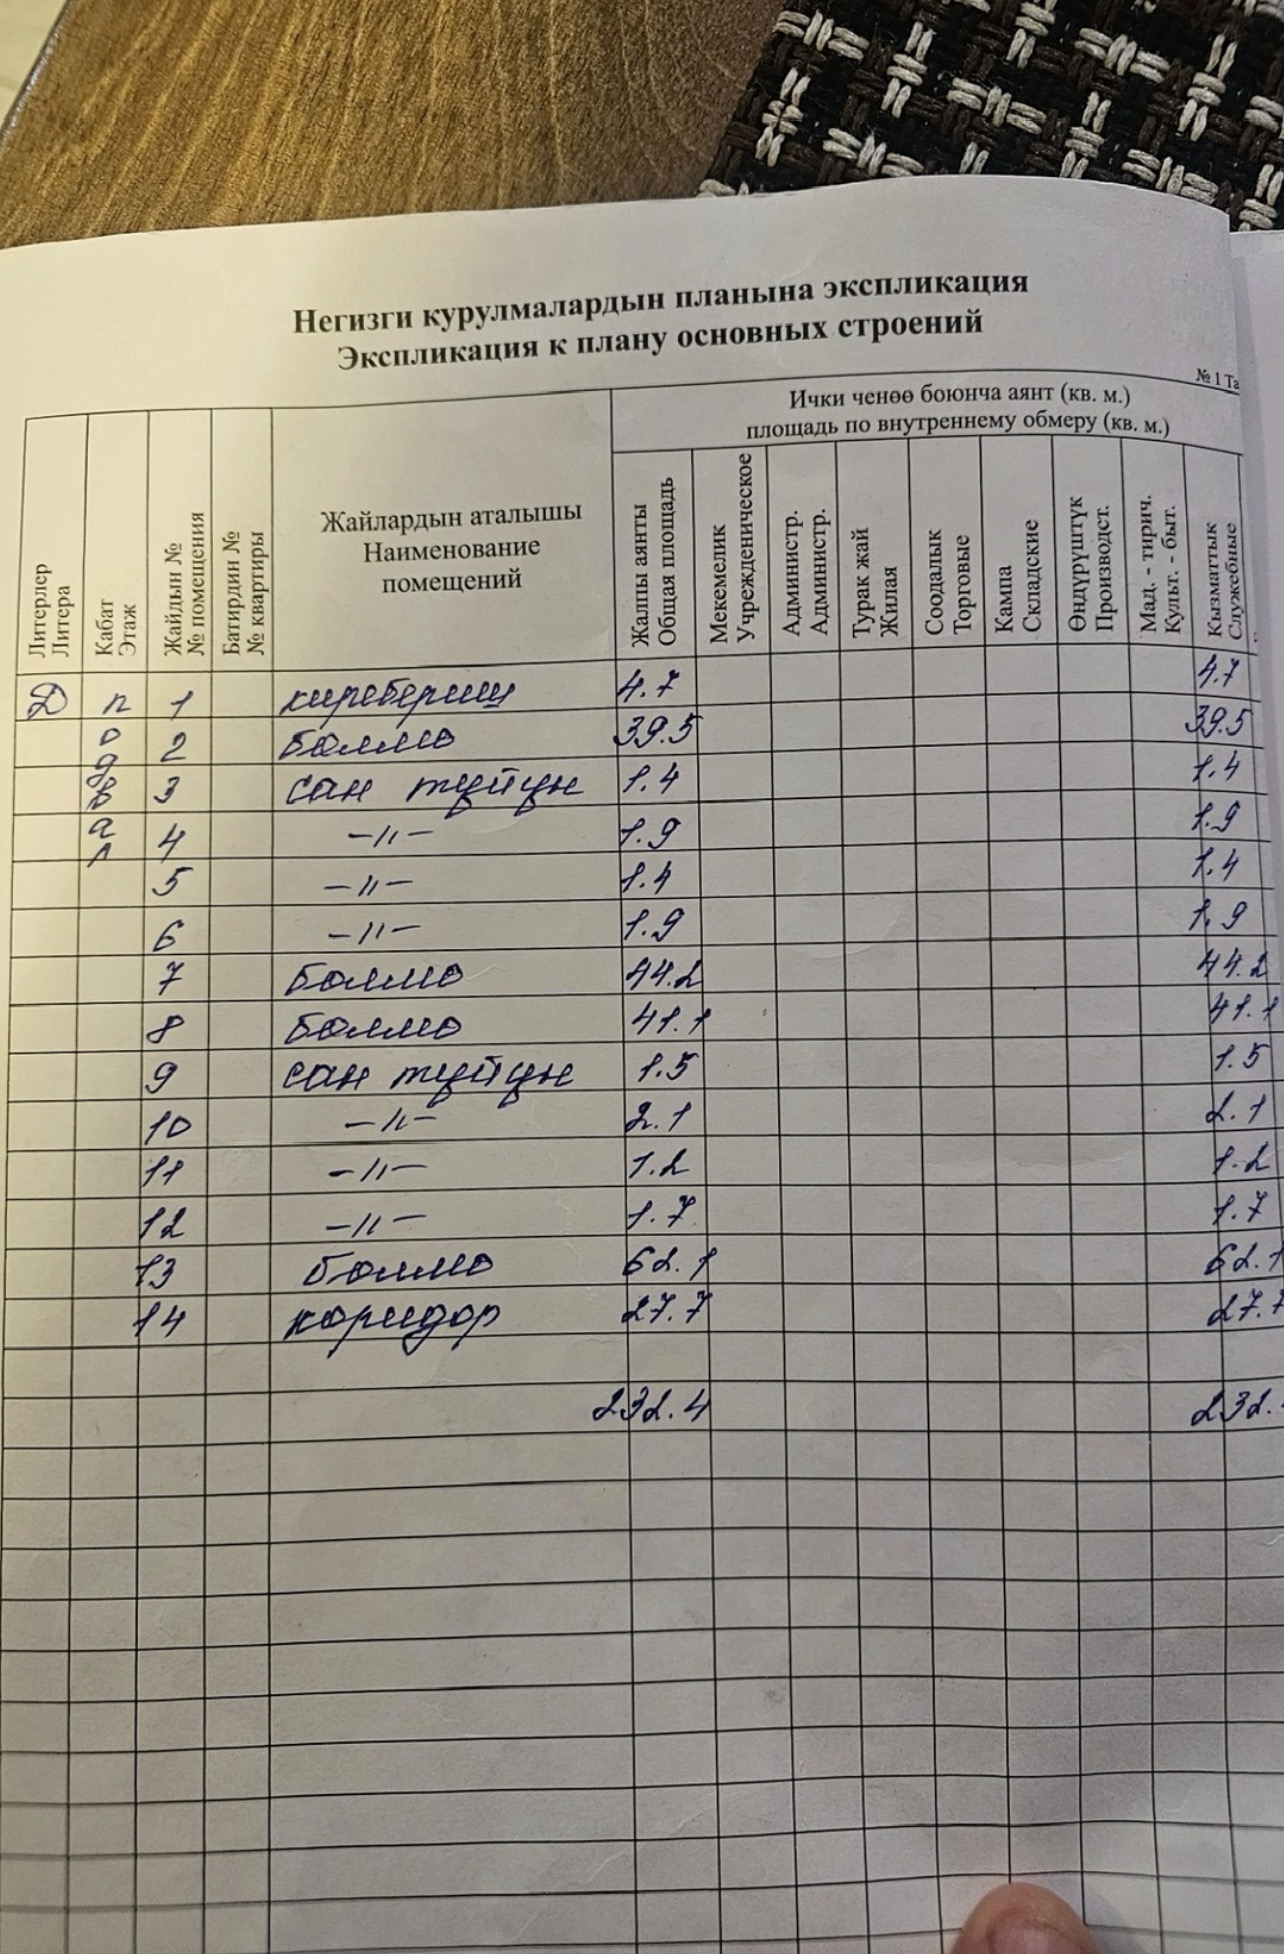 Негизги курулмалардын планына экспликация
Экспликация к плану основных строений
№ 1 Та
Ички ченөө боюнча аянт (кв. м.)
площадь по внутреннему обмеру (кв. м.)
Литерлер
Литера
Кабат
Этаж
Жайдын №
№ помещения
Батирдин №
№ квартиры
Жайлардын аталышы
Наименование
помещений
Жалпы аянты
Общая площадь
Мекемелик
Учрежденическое
Администр.
Администр.
Турак жай
Жилая
Соодалык
Торговые
Кампа
Складские
Өндүрүштүк
Производст.
Мад. - тирич.
Культ. - быт.
Кызматтык
Служебные
Д п 1 киребериш 4.7 4.7
о 2 бөлмө 39.5 39.5
д
в 3 сан түйүн 1.4 1.4
а 4 -〃- 1.9 1.9
л
5 -〃- 1.4 1.4
6 -〃- 1.9 1.9
7 бөлмө 44.2 44.2
8 бөлмө 41.1 41.1
9 сан түйүн 1.5 1.5
10 -〃- 2.1 2.1
11 -〃- 1.2 1.2
12 -〃- 1.7 1.7
13 бөлмө 62.1 62.1
14 коридор 27.7 27.7
232.4 232.